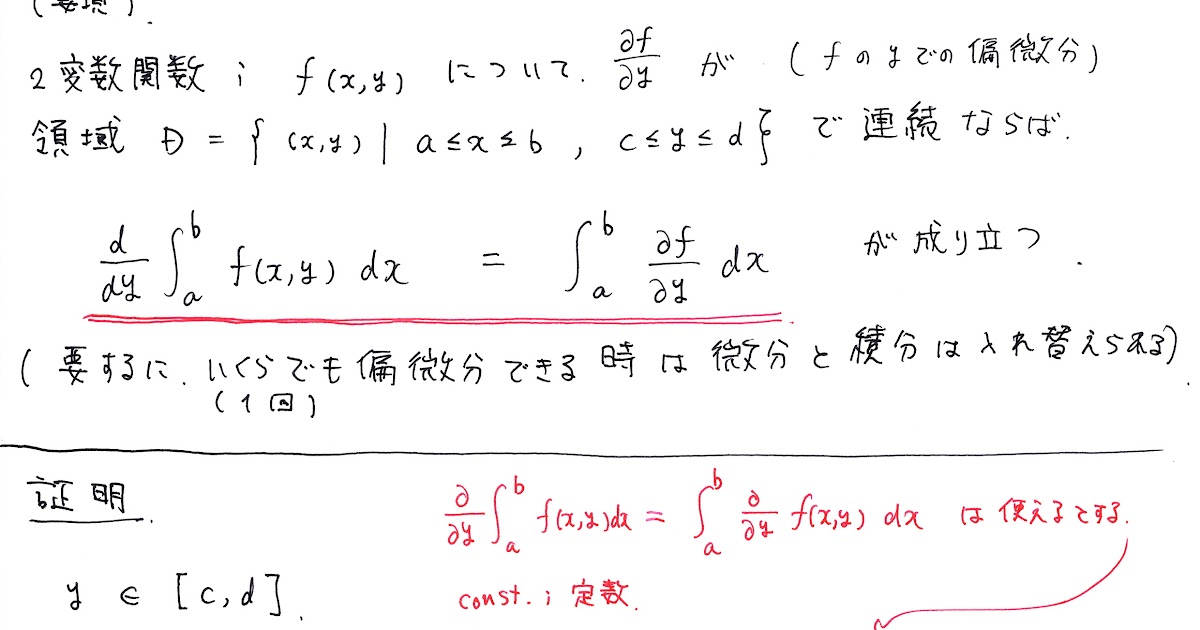 (要項).
2変数関数; f(x,y) について. ∂f/∂y が (fのyでの偏微分)
領域 D = { (x,y) | a≤x≤b , c≤y≤d } で連続ならば.
d/dy ∫_a^b f(x,y) dx = ∫_a^b ∂f/∂y dx が成り立つ.
(要するに. いくらでも偏微分できる時は微分と積分は入れ替えられる).
(1回)
証明.
∂/∂y ∫_a^b f(x,y)dx = ∫_a^b ∂/∂y f(x,y) dx は使えるとする.
y ∈ [c,d].
const. ; 定数.